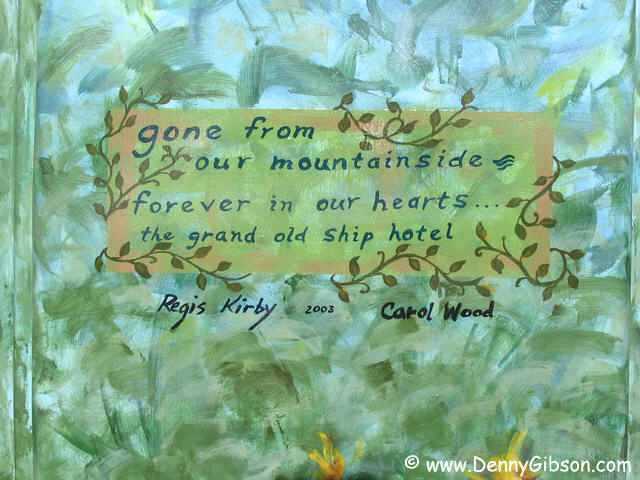 gone from
our mountainside
forever in our hearts...
the grand old ship hotel
Regis Kirby 2003 Carol Wood
© www.DennyGibson.com